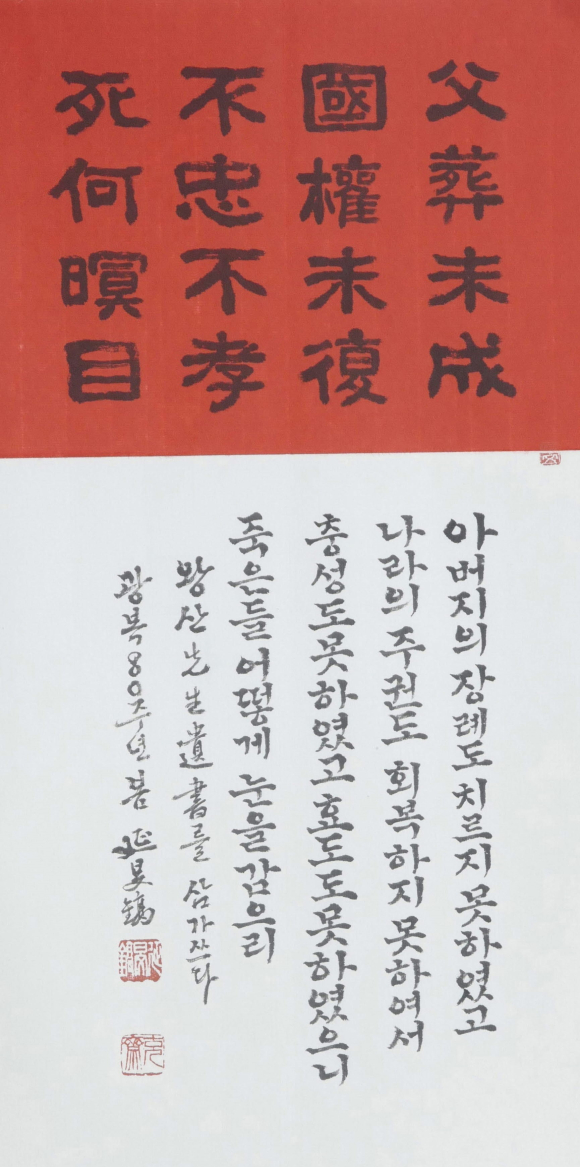 父葬未成
國權未復
不忠不孝
死何暝目
아버지의 장례도 치르지 못하였고
나라의 주권도 회복하지 못하여서
충성도 못하였고 효도도 못하였으니
죽은들 어떻게 눈을 감으리
왕산 先生 遺書를 삼가 쓰다
광복 80주년 봄